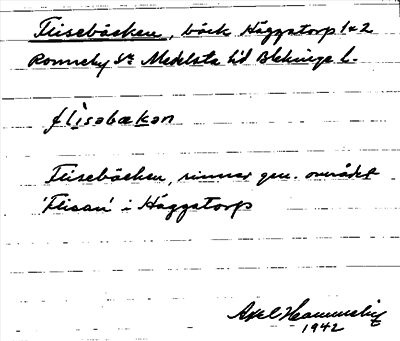 Flisebäcken, bäck Häggatorp 1&2
Ronneby sn Medelsta hd Blekinge l.
flisabækan
Flisebäcken, rinner gen. området
'Flisan' i Häggatorp
Axel
1942